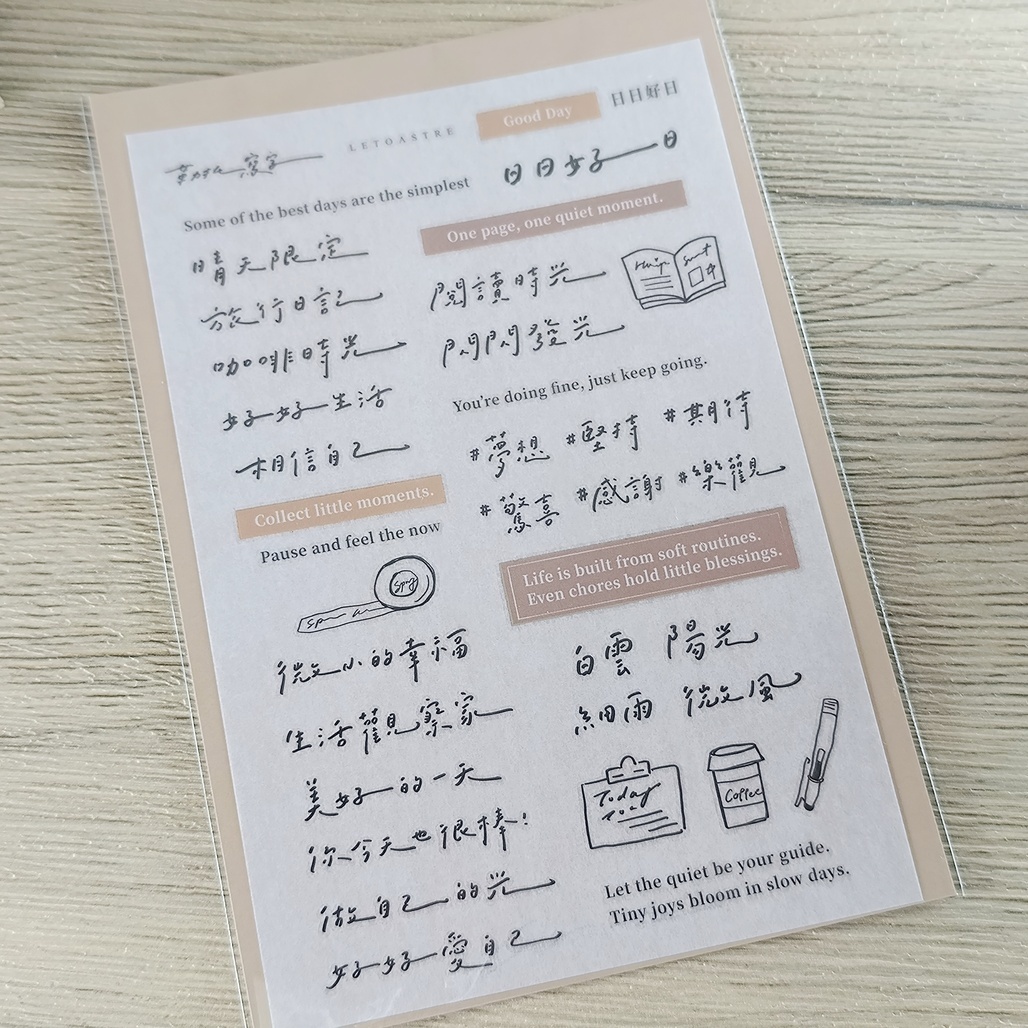 LETOASTRE
Good Day
日日好日
日日好日
Some of the best days are the simplest
One page, one quiet moment.
晴天限定
旅行日記
咖啡時光
好好生活
相信自己
閱讀時光
閃閃發光
You're doing fine, just keep going.
#夢想 #堅持 #期待
#驚喜 #感謝 #樂觀
Collect little moments.
Pause and feel the now
Life is built from soft routines.
Even chores hold little blessings.
微小的幸福
生活觀察家
美好的一天
你今天也很棒!
做自己的光
好好愛自己
白雲 陽光
細雨 微風
Today
Coffee
Let the quiet be your guide.
Tiny joys bloom in slow days.